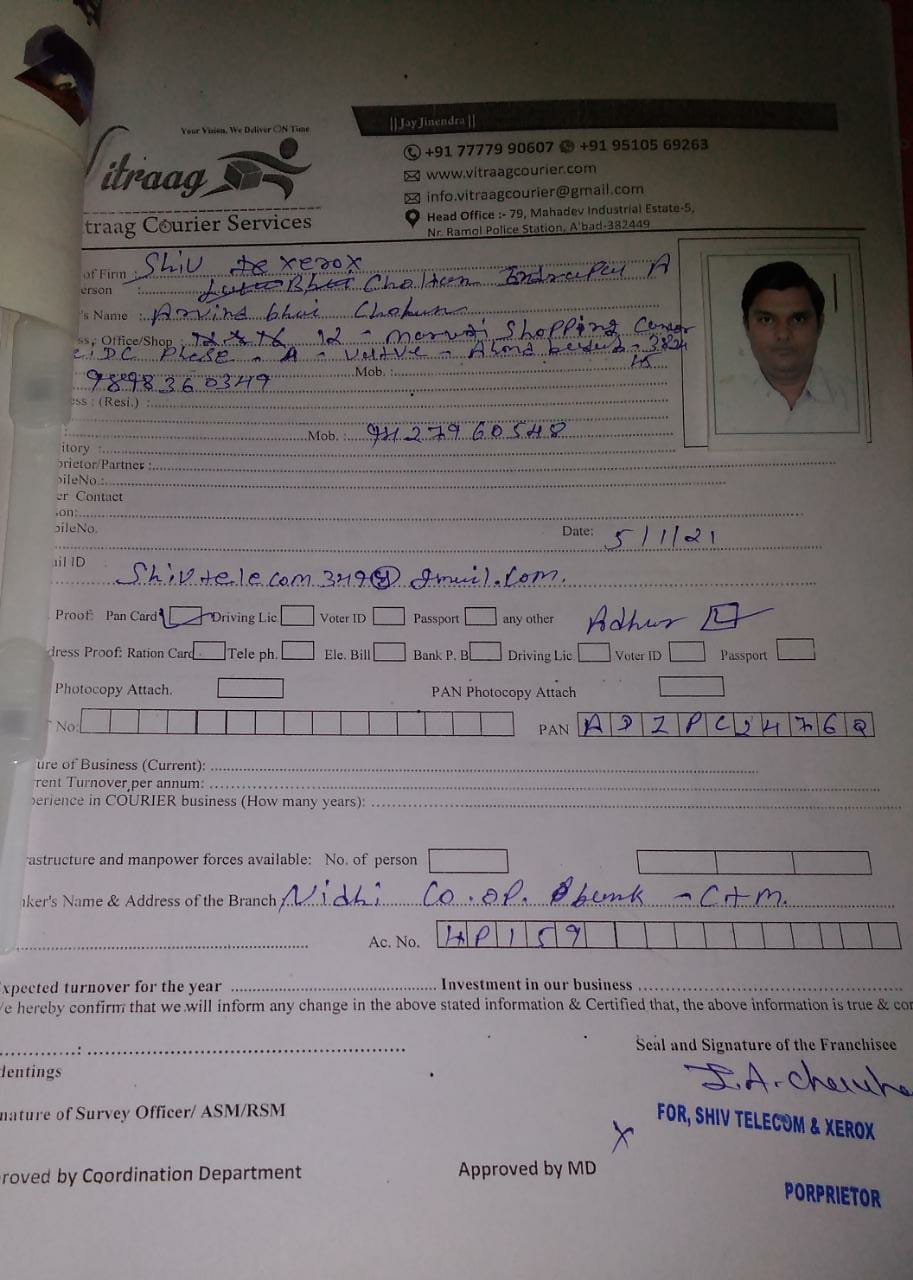 Your Vision, We Deliver ON Time
|| Jay Jinendra ||
Vitraag
traag Courier Services
+91 77779 90607 +91 95105 69263
www.vitraagcourier.com
info.vitraagcourier@gmail.com
Head Office :- 79, Mahadev Industrial Estate-5,
Nr. Ramol Police Station, A'bad-382449
of Firm : Shiv te xerox
erson :
's Name : Arvind bhai Chohan
ss, Office/Shop : 12 - maruti Shopping Center
PhASe - A - vatve - 3824
Mob. : 45
9898360349
ess : (Resi.) :
Mob. : 9427960548
itory :
prietor/Partner :
bileNo.:
er Contact
on:
bileNo.
Date: 5/1/21
ail ID
Shivtelecom349@gmail.com.
Proof: Pan Card Driving Lic Voter ID Passport any other Adhar
dress Proof: Ration Card Tele ph. Ele. Bill Bank P. B Driving Lic Voter ID Passport
Photocopy Attach. PAN Photocopy Attach
No: PAN ADZPC2476Q
ure of Business (Current):
rrent Turnover per annum:
perience in COURIER business (How many years):
rastructure and manpower forces available: No. of person
ker's Name & Address of the Branch Nidhi Co.op. bank - CTM.
Ac. No. HP159
xpected turnover for the year Investment in our business
e hereby confirm that we will inform any change in the above stated information & Certified that, the above information is true & cor
Seal and Signature of the Franchisee
dentings
I.A.
nature of Survey Officer/ ASM/RSM
FOR, SHIV TELECOM & XEROX
roved by Coordination Department Approved by MD
PORPRIETOR